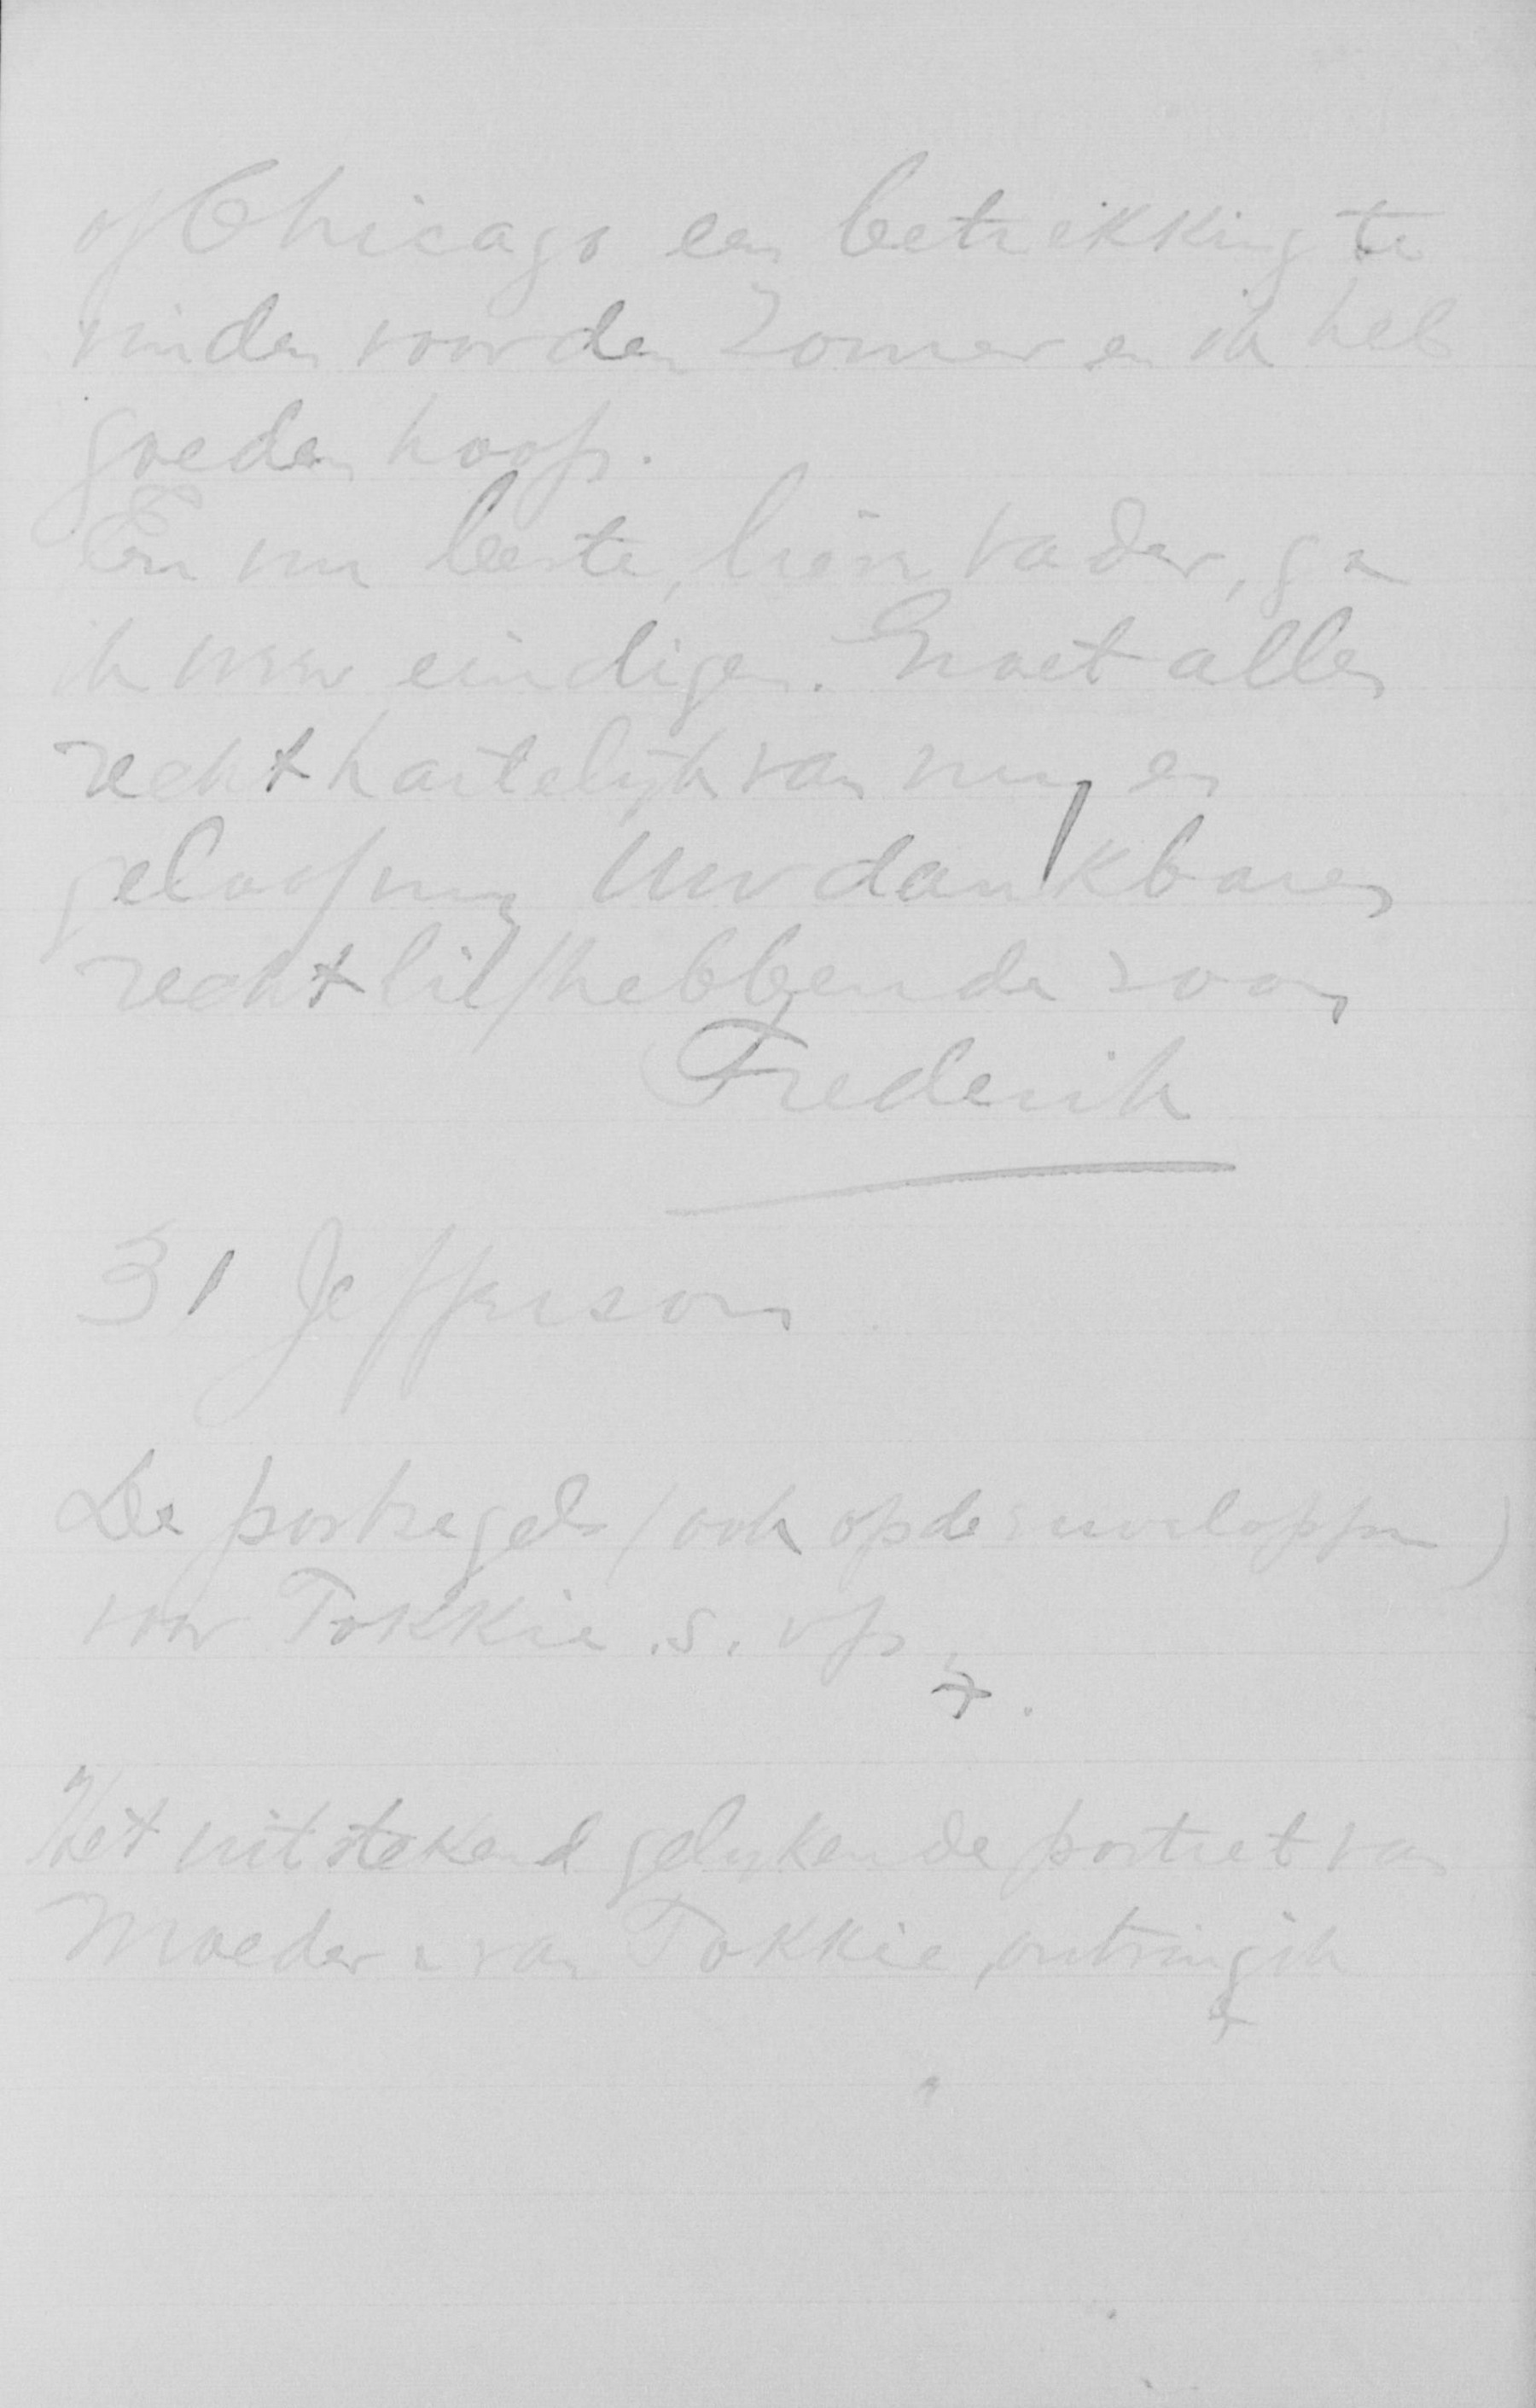 of Chicago een betrekking te
vinden voor den Zomer en ik heb
goeden hoop.
En nu beste, lieve Vader, ga
ik weer eindigen. Groet allen
recht hartelijk van mij en
geloof mij Uw dankbare,
recht liefhebbende zoon,
Frederik
31 Jefferson
De postzegels (ook op de enveloppen)
voor Tokkie .s.v.p.
Het uitstekend gelijkende portret van
Moeder en van Tokkie, ontving ik